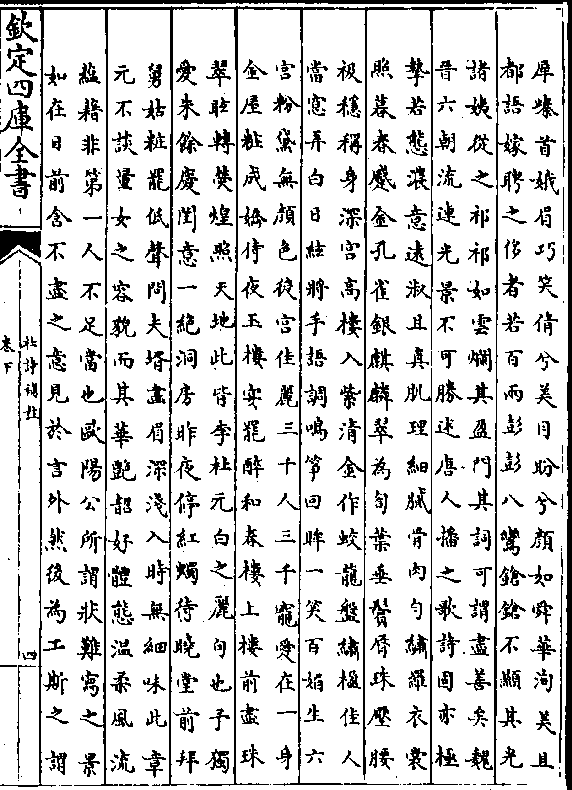 犀螓首蛾眉巧笑倩兮美目盼兮顔如舜華洵美且
都語嫁聘之侈者若百兩彭彭八鸞鎗鎗不顯其光
諸娣從之祁祁如雲爛其盈門其詞可謂盡善矣魏
晉六朝流連光景不可勝述唐人播之歌詩固亦極
摯若態濃意逺淑且真肌理細膩骨肉勻繡羅衣裳
照暮春蹙金孔雀銀麒麟翠為㔩葉垂鬢唇珠壓腰
衱穩稱身深宫高樓入紫清金作蛟龍盤繡楹佳人
當窓弄白日絃將手語調鳴筝回眸一笑百媚生六
宫粉黛無顔色後宫佳麗三千人三千寵愛在一身
金屋粧成嬌侍夜玉樓宴罷醉和春樓上樓前盡珠
翠眩轉熒煌照天地此皆李杜元白之麗句也予獨
愛朱餘慶閨意一絶洞房昨夜停紅蠋待曉堂前拜
舅姑粧罷低聲問夫壻畫眉深淺入時無細味此章
元不談量女之容貌而其華艶韶好體態温柔風流
蘊藉非第一人不足當也歐陽公所謂狀難寫之景
如在目前含不盡之意見於言外然後為工斯之謂
欽定四庫全書
杜詩攟
卷下
四